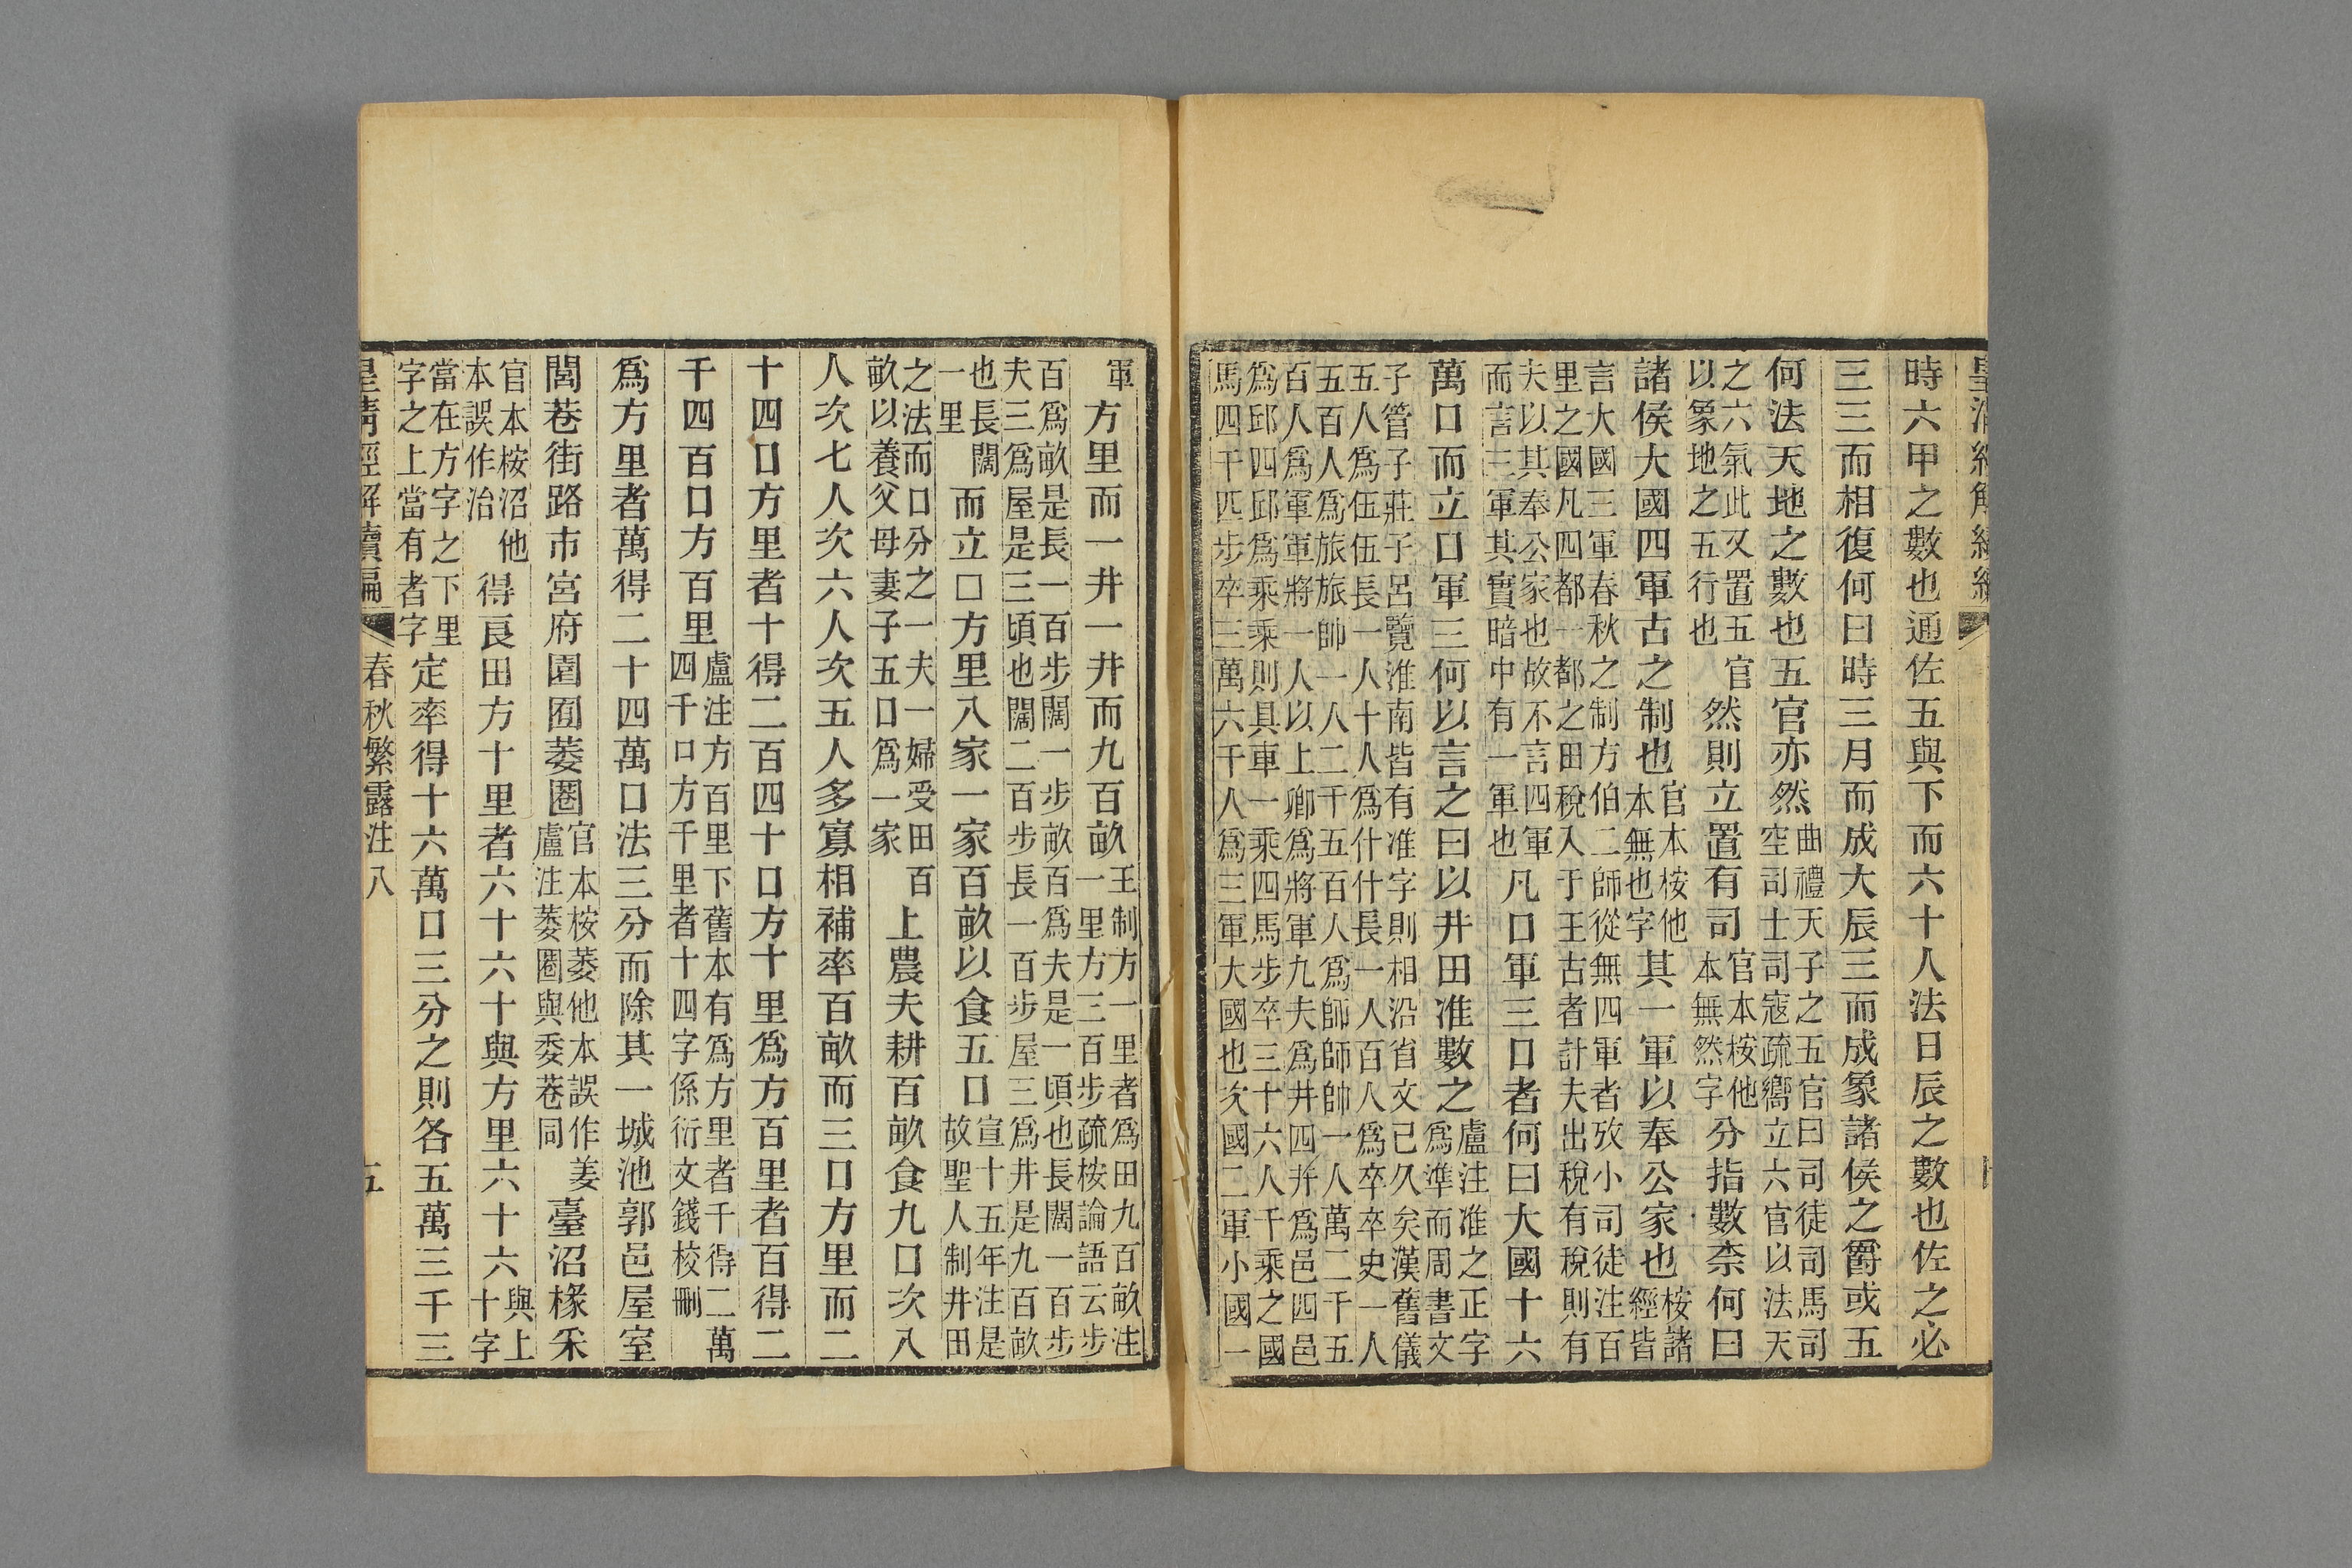 皇清經解續編
時六甲之數也通佐五與下而六十人法日辰之數也佐之必
三三而相復何曰時三月而成大辰三而成象諸侯之爵或五
何法天地之數也五官亦然曲禮天子之五官曰司徒司馬司空司士司寇疏嚮立六官以法天
之六氣此又置五官以象地之五行也然則立置有司官本桉他本無然字分指數柰何曰
諸侯大國四軍古之制也官本桉他本無也字其一軍以奉公家也桉諸經皆
言大國三軍春秋之制方伯二師從無四軍者攷小司徒注百里之國凡四都一都之田稅入于王古者計夫出稅有稅則有
夫以其奉公家也故不言四軍而言三軍其實暗中有一軍也凡口軍三口者何曰大國十六
萬口而立口軍三何以言之曰以井田准數之盧注准之正字爲準而周書文
子管子莊子呂覽淮南皆有准字則相沿省文已久矣漢舊儀五人爲伍伍長一人十人爲什什長一人百人爲卒卒史一人
五百人爲旅旅帥一人二千五百人爲師師帥一人萬二千五百人爲軍軍將一人以上卿爲將軍九夫爲井四井爲邑四邑
爲邱四邱爲乘乘則具車一乘四馬步卒三十六人千乘之國馬四千匹步卒三萬六千人爲三軍大國也次國二軍小國一
軍方里而一井一井而九百畝王制方一里者爲田九百畝注一里方三百步疏桉論語云步
百爲畝是長一百步闊一步畝百爲夫是一頃也長闊一百步夫三爲屋是三頃也闊二百步長一百步屋三爲井是九百畝
也長闊一里而立口方里八家一家百畝以食五口宣十五年注是故聖人制井田
之法而口分之一夫一婦受田百畝以養父母妻子五口爲一家上農夫耕百畝食九口次八
人次七人次六人次五人多寡相補率百畝而三口方里而二
十四口方里者十得二百四十口方十里爲方百里者百得二
千四百口方百里盧注方百里下舊本有爲方里者千得二萬四千口方千里者十四字係衍文錢校刪
爲方里者萬得二十四萬口法三分而除其一城池郭邑屋室
閭巷街路市宮府園囿萎圈官本桉萎他本誤作姜盧注萎圈與委巷同臺沼椽采
官本桉沼他本誤作治得良田方十里者六十六十與方里六十六與上十字
當在方字之下里字之上當有者字定率得十六萬口三分之則各五萬三千三
皇清經解續編 春秋繁露注八 五